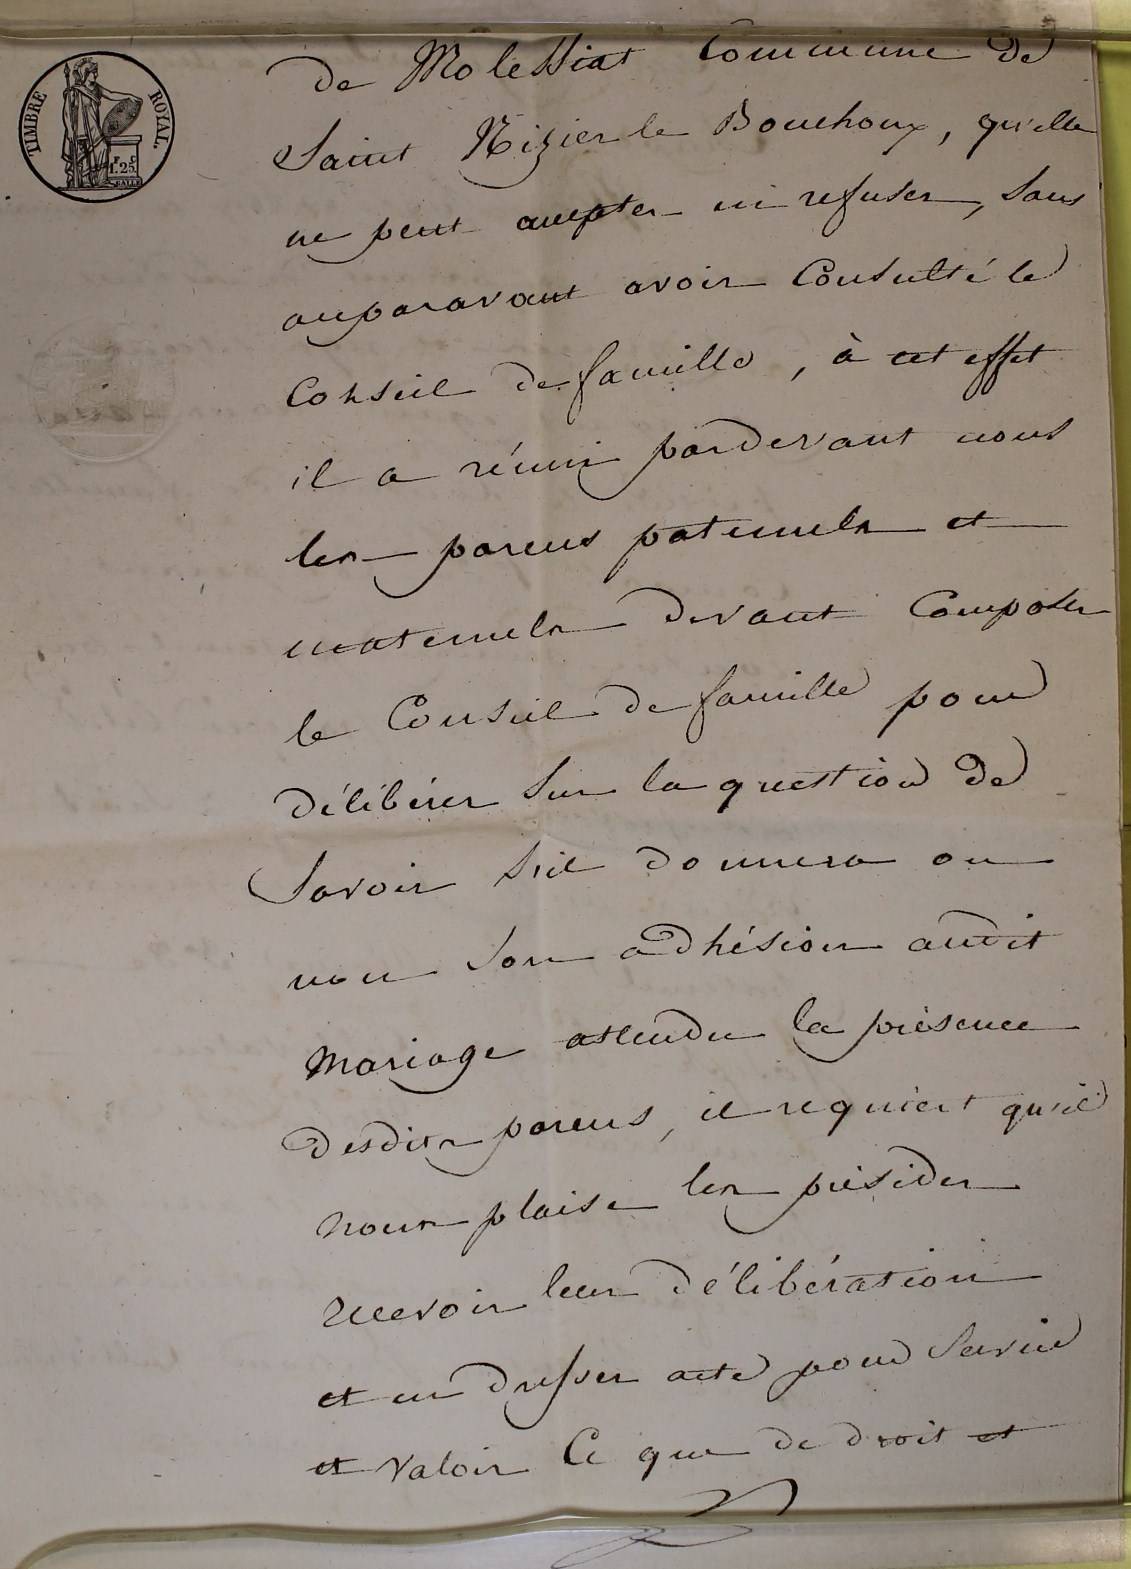 TIMBRE ROYAL.
F. C
1.25
de Molessiat Commune de
Saint Nizier le Bouchoux, qu'elle
ne peut accepter ni refuser, sans
auparavant avoir Consulté le
Conseil de famille, à cet effet
il a réuni pardevant nous
les parens paternels et
maternels devant Composer
le Conseil de famille pour
délibérer sur la question de
Savoir s'il donnera ou
non son adhésion audit
mariage attendu la présence
desdits parens, il requiert qu'il
nous plaise les présider
recevoir leur délibération
et en dresser acte pour servir
et valoir Ce que de droit et